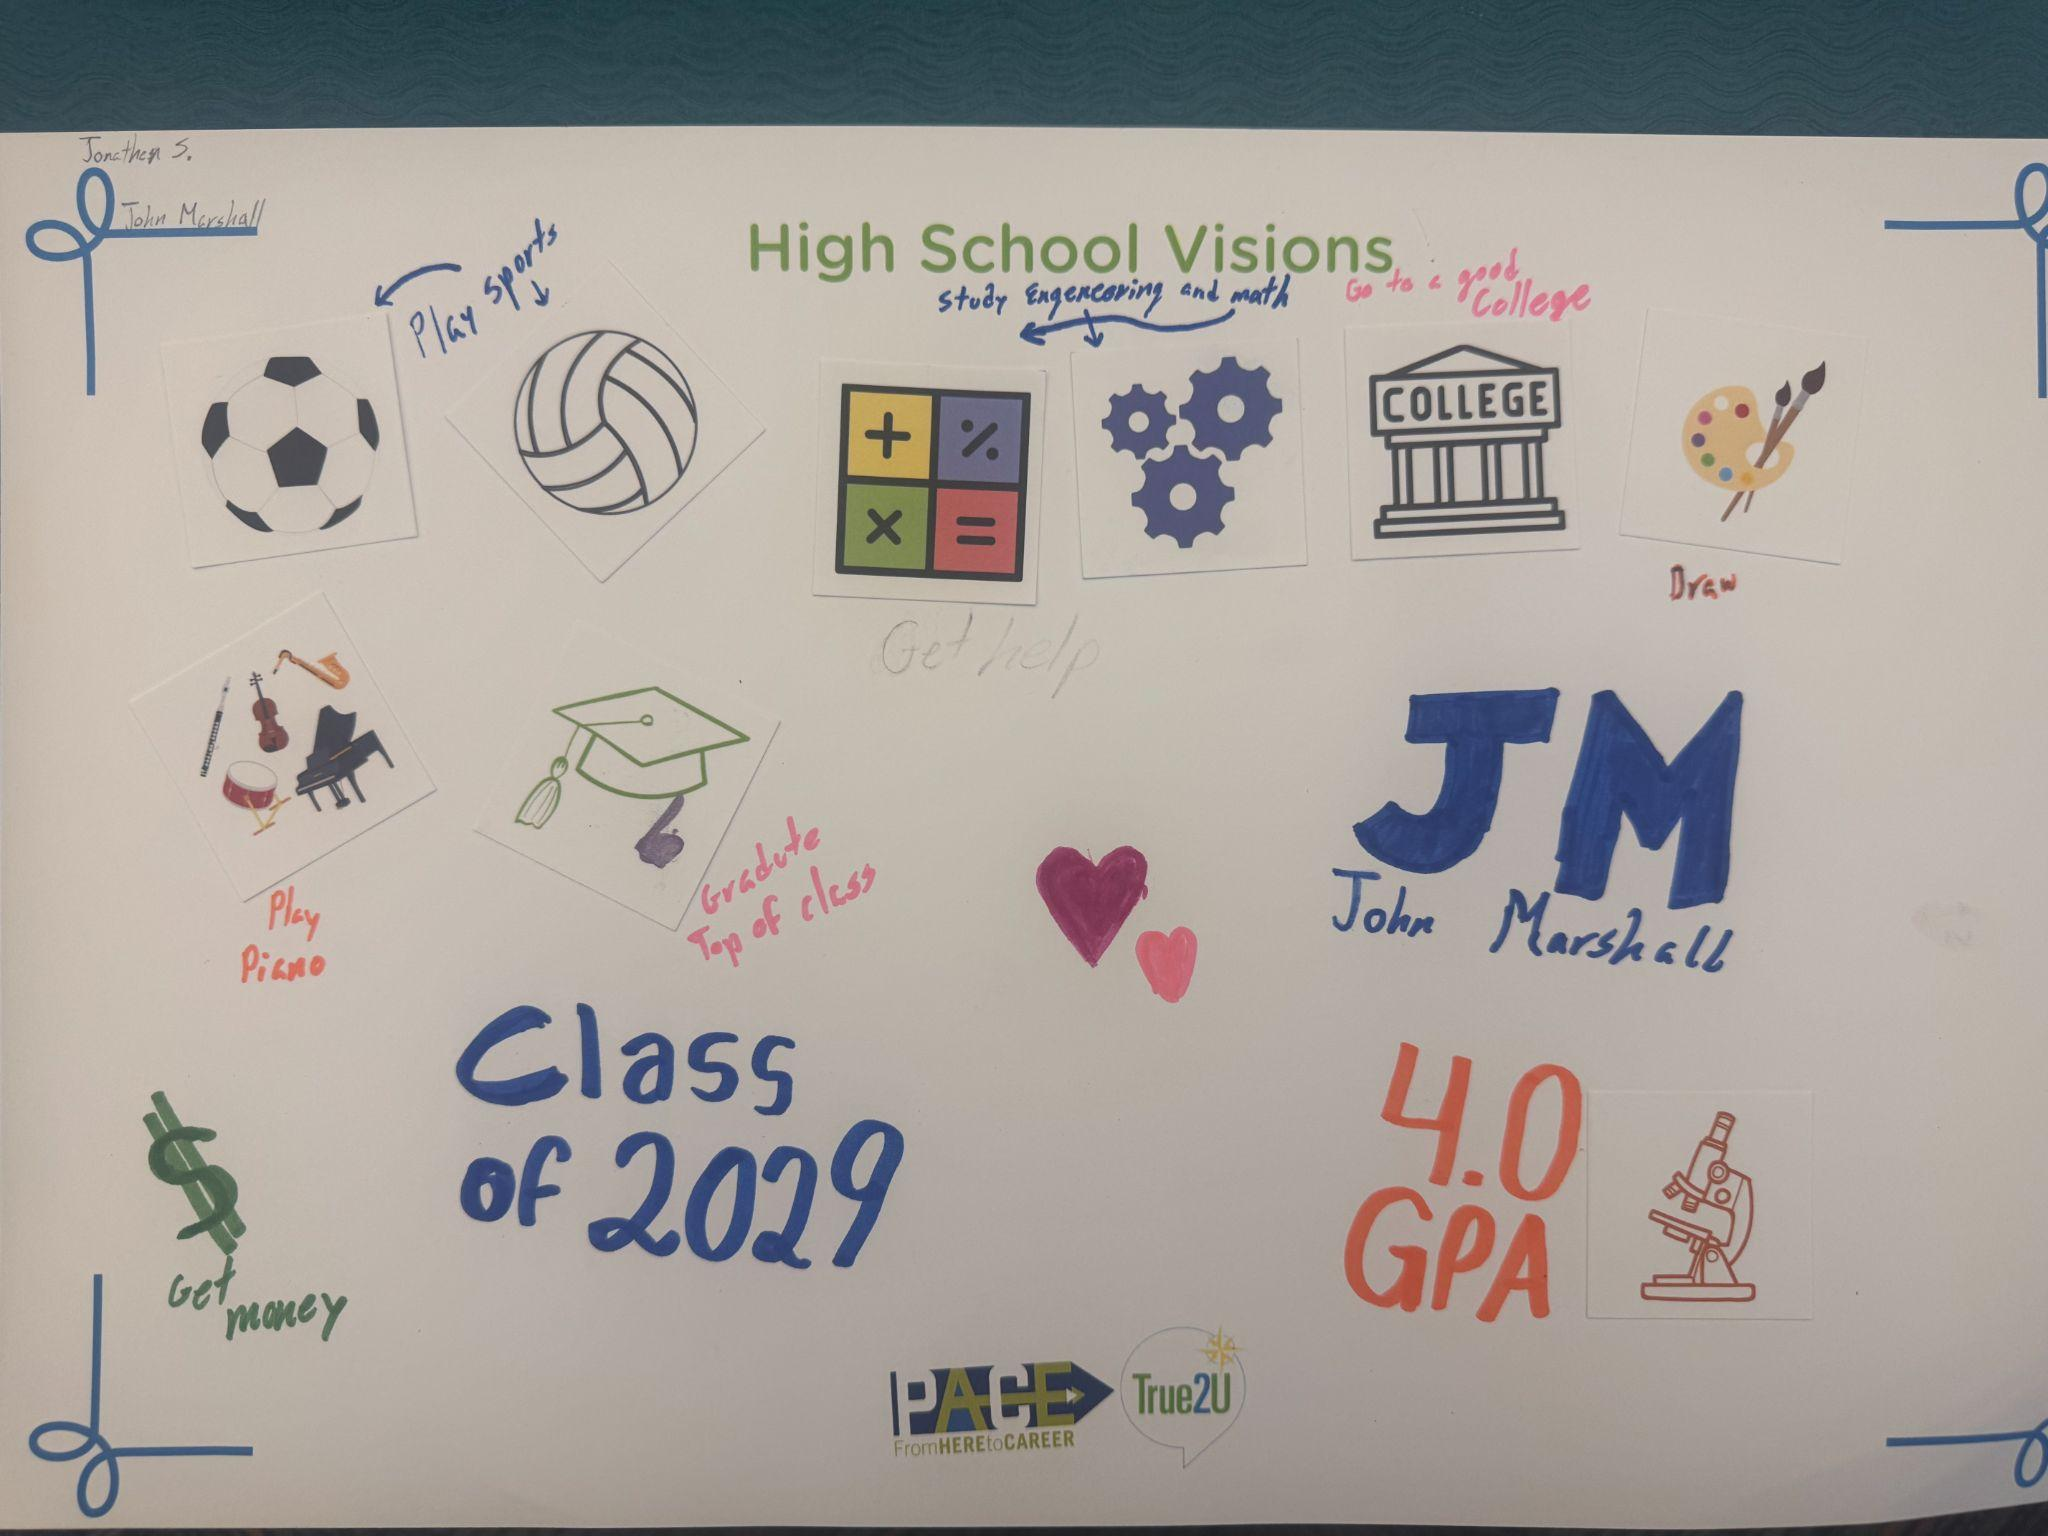 Jonathen S.
John Marshall
High School Visions
Play sports
Study Engeneering and math
Go to a good
College
COLLEGE
Draw
Get help
Play
Piano
Gradute
Top of class
JM
John Marshall
Class
of 2029
4.0
GPA
Get
money
PACE
FromHEREtoCAREER
True2U